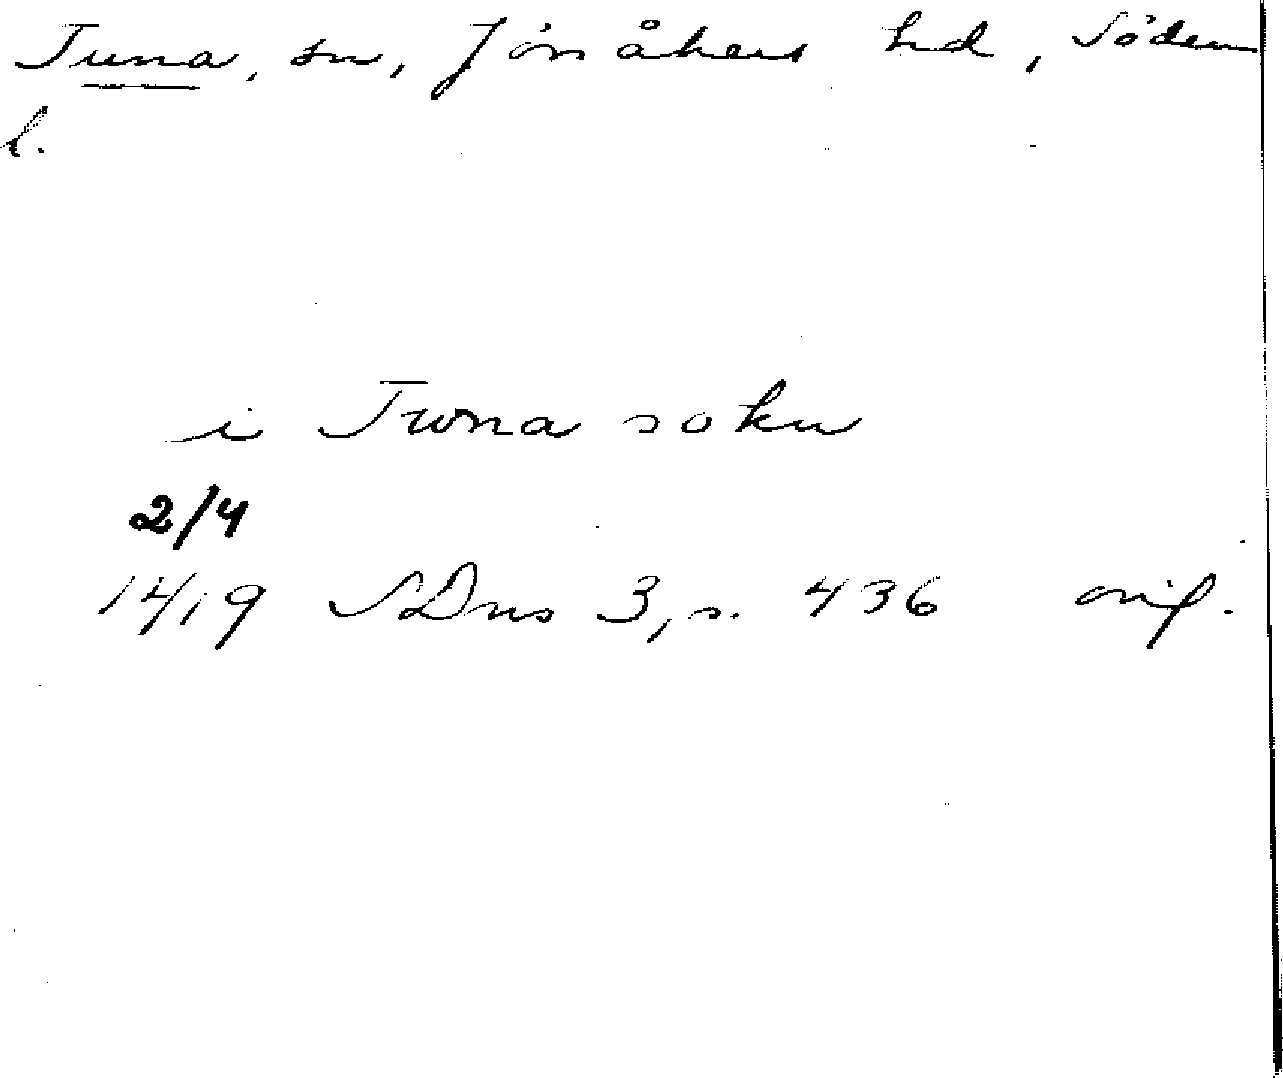 Tuna, sn, Jönåkers hd, Söderm
l.
i Twna sokn
2/4
1419 SDns 3, s. 436 orig.